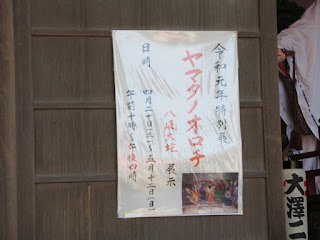 令和元年特別展
ヤマタノオロチ
八岐大蛇 展示
日時
四月二十日(土)~五月十二日(日)
午前十時~午後四時
大澤二